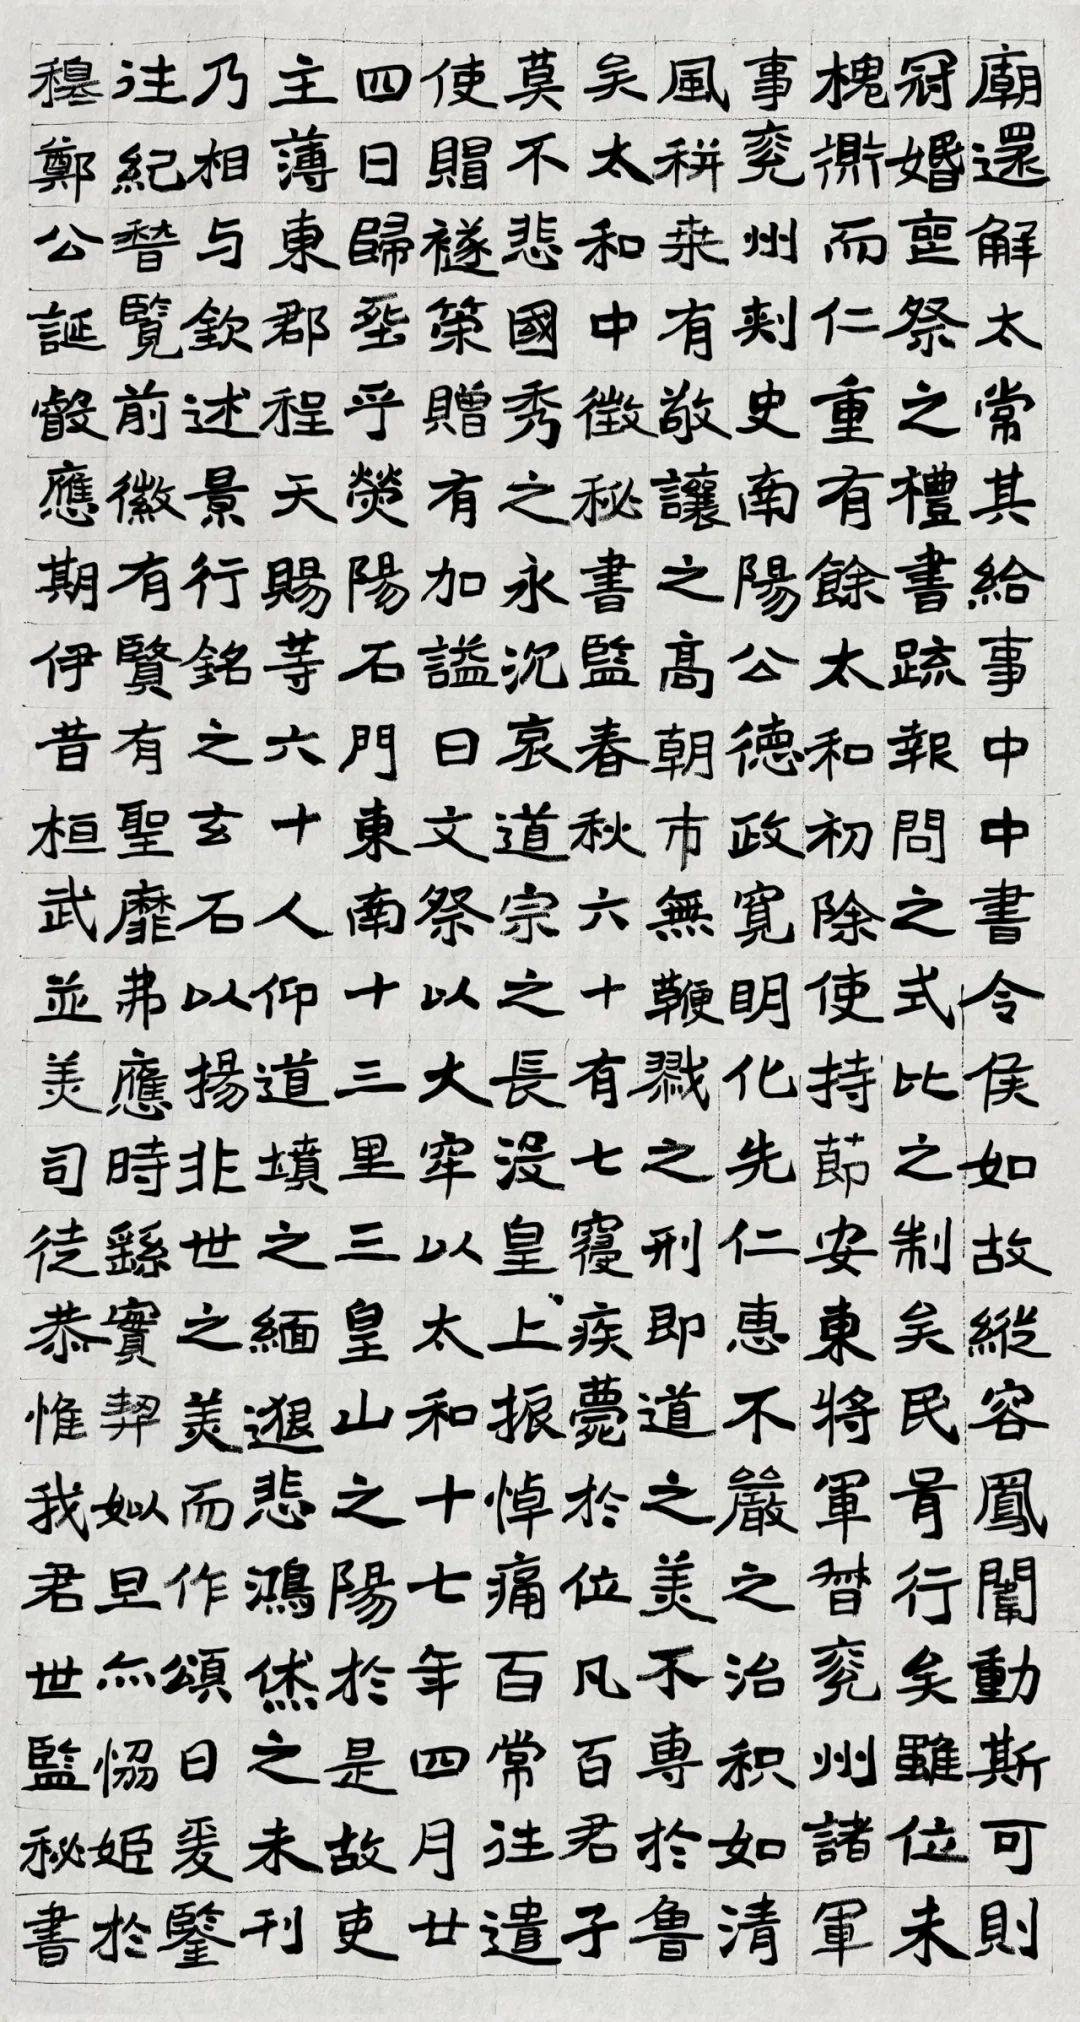 廟還解太常其給事中中書令侯如故縱容鳳闈動斯可則
冠婚喪祭之禮書疏報問之式比之制矣民胥行矣雖位未
槐衡而仁重有餘太和初除使持節安東將軍督兗州諸軍
事兗州刺史南陽公德政寬明化先仁惠不嚴之治积如清
風耕桒有敬讓之高朝市無鞭戮之刑即道之美不專於魯
矣太和中徵秘書監春秋六十有七寢疾薨於位凡百君子
莫不悲國秀之永沉哀道宗之長沒皇上振悼痛百常往遣
使賵襚策贈有加謚曰文祭以大牢以太和十七年四月廿
四日歸葬乎熒陽石門東南十三里三皇山之陽於是故吏
主薄東郡程天賜等六十人仰道墳之緬邈悲鴻休之未刊
乃相与欽述景行銘之玄石以揚非世之美而作頌曰爰鑒
往紀稽覽前徽有賢有聖靡弗應時繇實契姒旦亦協姬於
穆鄭公誕叡應期伊昔桓武並美司徒恭惟我君世監秘書